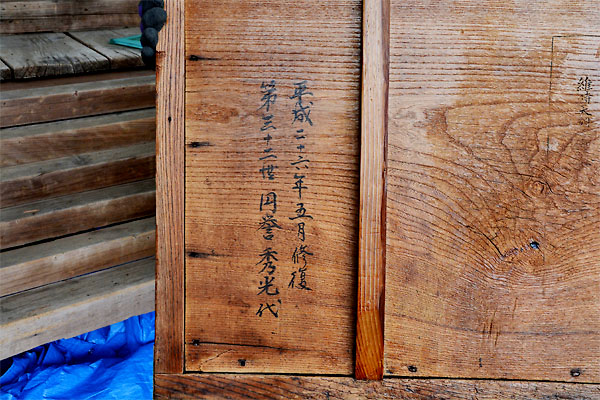 平成二十六年五月修復
第三十二世円誉秀光代